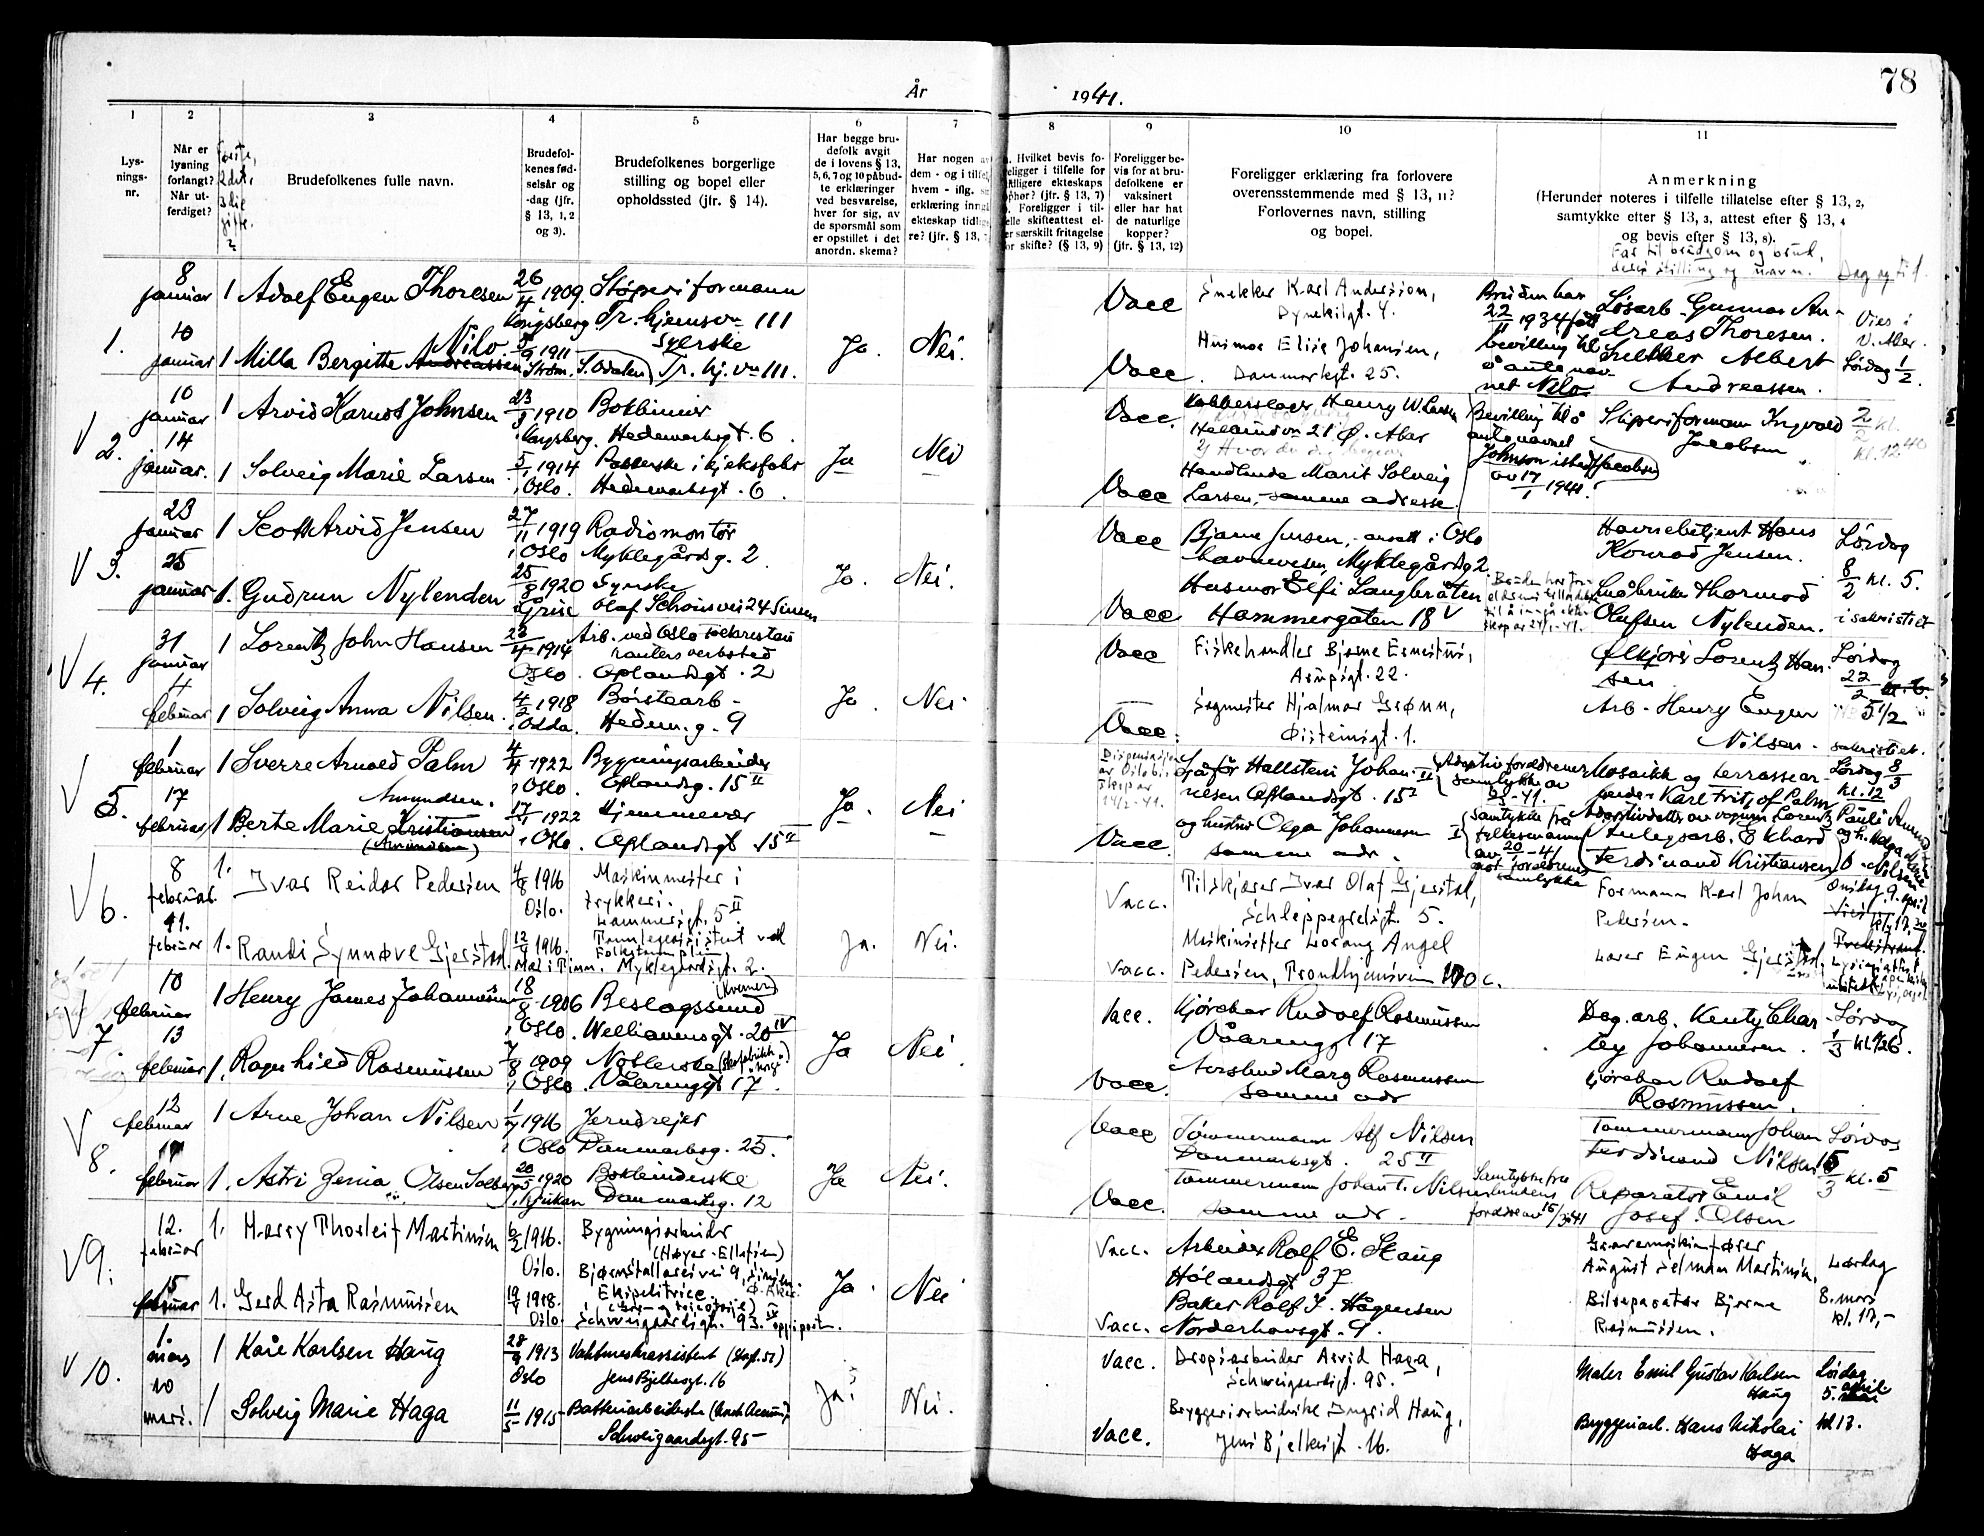 78
År 1941.
1
2
3
4
5
6
7
8
9
10
11
Lys-
nings-
nr.
Når er
lysning
forlangt?
Når ut-
ferdiget?
Brudefolkenes fulle navn.
Brudefol-
kenes fød-
selsår og
-dag (jfr.
§ 13, 1, 2
og 3).
Brudefolkenes borgerlige
stilling og bopel eller
opholdssted (jfr. § 14).
Har begge bru-
defolk avgit
de i lovens § 13,
5, 6, 7 og 10 påbud-
te erklæringer
ved besvarelse,
hver for sig, av
de spørsmål som
er opstillet i det
anordn. skema?
Har nogen av
dem - og i tilfe
hvem - iflg.
erklæring inng
ekteskap tidlig
re? (jfr. § 13,
Hvilket bevis fo-
religger i tilfelle for
tidligere ekteskaps
ophør? (§ 13, 7)
Foreligger i til-
felle skifteattest el-
er særskilt fritagelse
for skifte? (§ 13, 9)
Foreligger be-
vis for at bru-
defolkene er
vaksinert
eller har hat
de naturlige
kopper?
(jfr. § 13, 12)
Foreligger erklæring fra forlovere
overensstemmende med § 13, 11?
Forlovernes navn, stilling
og bopel.
Anmerkning
(Herunder noteres i tilfelle tillatelse efter § 13, 2,
samtykke efter § 13, 3, attest efter § 13, 4
og bevis efter § 13, 8).
Far til brudgom og brud,
deres stilling og navn.
Dag og tid.
1.
8
januar
1 Adolf Eugen Thoresen
26/4 1909
Kongsberg
Støperiformann
Tr. hjemsvn 111
10
januar
1 Milla Bergitte Andreassen
Nilo
1911
Syerske
Tr. hj. vn 111.
Ja.
Nei.
Vacc
Snekker Karl Anderssen,
Dynekilgt. 4.
Husmor Elise Johansen,
Danmarksgt. 25.
Vacc.
Bruden har
22/11 1934 fått
bevilling til
å anta nav-
net Nilo
Løsarb. Gunnar An-
dreas Thoresen.
Albert
Andreassen.
Vies i
V. Aker.
Lørdag 1/2.
V 2.
10
januar
1 Arvid Harald Johnsen
23/3 1910
Kongsberg.
Bokbinder
Hedemarksgt. 6.
14
januar.
1 Solveig Marie Larsen
5/1 1914
Oslo.
Pakkerske i kjeksfabr
Hedemarksgt. 6.
Ja
Nei
Vacc.
Kobberslager Henry W. Larsen
Handlende Marit Solveig
Larsen, samme adresse.
Vacc
Bevilling til å
anta navnet
Johnson istedf Jacobsen
av 17/1 1941.
Støperiformann Ingvald
Jacobsen
2/2 kl.
kl. 12.40
V 3.
23
januar
1 Scott Arvid Jensen
27/11 1919
i Oslo
Radiomontør
Myklegårdsg. 2
25
januar
1. Gudrun Nylenden
25/8 1920
Syerske
Olaf Schousvei 24 Sinsen
Ja.
Nei.
Vacc
Bjarne Jensen, ansatt i Oslo
havnevesen, Myklegårdsg 2
Husmor Elfi Langbråten
Hammergaten 18 V
Vacc
Havnebetjent Hans
Konrad Jensen.
Småbruker Thormod
Olafsen Nylenden.
Lørdag
8/2 kl. 5.
i sakristiet
V 4.
31
januar
1 Lorentz John Hansen
23/4 1914
Oslo.
Arb. ved Oslo
Oplandsgt. 2
4
februar
1 Solveig Anna Nilsen.
4/2 1918
i Odda.
Børstearb-
Hedem. g. 9
Ja.
Nei
Vacc
Fiskehandler Bjarne Ernestus,
Asmpsgt. 22.
Sagmester Hjalmar Grønn,
Øisteinsgt. 1.
Vacc.
Elkjører Lorentz Han-
sen
Arb. Henry Eugen
Nilsen.
Lørdag
22/2
5 1/2
sakristiet.
V 5.
1
februar
1 Sverre Arnold Palm
4/4 1922
i Oslo.
Bygningsarbeider
Oplandsg. 15 II
17
februar
1 Berte Marie Kristiansen
Amundsen.
(Amundsen)
17/4 1922
i Oslo.
Hjemmevær
Oplandsgt 15 II
Ja.
Nei
Sjåfør Hallstein Johan-
nesen Oplandsgt. 15
og hustru Olga Johannesen
samme adr.
Vacc.
Adoptivforeldrenes
samtykke av
Samtykke fra
fylkesmannen
av 20/1-41
Mosaikk og terrassear-
beider Karl Fritjof Palm
Adoptivdatter av vognm. Lorentz
Anlegsarb. Ekhard
Ferdinand Kristiansen
Lørdag 8/3
kl. 12
V 6.
8
februar.
1. Ivar Reidar Pedersen
4/8 1916
Oslo.
Maskinmester i
trykkeri.
Lammersgt. 5 II
11.
februar
1. Randi Synnøve Gjerstad.
12/4 1916.
Mæl i Tinn.
Tannlegeassistent ved
Myklegårdsgt. 2.
Ja.
Nei.
Vacc.
Tilskjærer Ivar Olaf Gjerstad,
Schleppegrellsgt. 5.
Maskinsetter Lorang Angel
Pedersen, Trondhjemsveien 170 c.
Vacc.
Formann Karl Johan
Pedersen.
Lærer Eugen Gjerstad.
Onsdag 9. april
V 7.
10
februar
1 Henry James Johannesen
18/8 1906
i Oslo.
Beslagssmed
(Kværner)
Wellhavensgt. 20 IV
13
februar
1. Ragnhild Rasmussen
7/8 1909
i Oslo.
Vålerenggt 17.
Ja
Nei.
Vacc.
Kjørekar Rudolf Rasmussen
Vålerengt 17
Aaslaug Marg Rasmussen
samme adr
Vacc.
Dag. arb. Kenty Char-
ley Johannesen.
Kjørekar Rudolf
Rasmussen.
Lørdag
1/3
V 8.
12
februar
1 Arne Johan Nilsen
1/7 1916
i Oslo
Jerndreier
Danmarksg. 25.
17
februar
1. Astri Zenia Olsen Solberg
20/5 1920
Rjukan
Bokbinderske
Danmarksg. 12
Ja
Nei.
Vacc
Tømmermann Alf Nilsen
Danmarksgt. 25 II
Tømmermann Johan F. Nilsen
samme adr.
Vacc.
Samtykke fra
brudens
foreldre av 15/3 41
Tømmermann Johan
Ferdinand Nilsen
Reparatør Emil
Josef Olsen
Lørdag
15/3 kl. 5
V 9.
12.
februar
1. Harry Thorleif Martinsen
6/2 1916.
Oslo.
Bygningsarbeider
(Høyer-Ellefsen)
15
februar
1. Gerd Asta Rasmussen
19/4 1918.
Oslo.
Ekspeditrice.
Schweigaardsgt. 93. IV
Ja.
Nei
Vacc.
Arbeider Rolf E. Skaug
Hølandsgt 37
Baker Rolf I. Hågensen
Norderhovsgt. 9.
Vacc.
Gravemaskinfører
August Selman Martinsen,
Bilreparatør Bjarne
Rasmussen.
Lørdag
8. mars
kl. 17,-
V 10.
1.
mars
1 Kåre Karlsen Haug
28/9 1913
Oslo
Vaktmesterassistent
Jens Bjelkesgt. 16
10
mars.
1 Solveig Marie Haga
11/5 1915
Schweigaardsgt. 95
Ja.
Nei.
Vacc.
Dropsarbeider Arvid Haga,
Schweigaardsgt. 95.
Bryggeriarbeiderske Ingrid Haug,
Jens Bjelkesgt. 16.
Vacc.
Maler Emil Gustav Karlsen
Haug
Bryggeriarb. Hans Nikolai
Haga
Lørdag
5. april
kl 13.